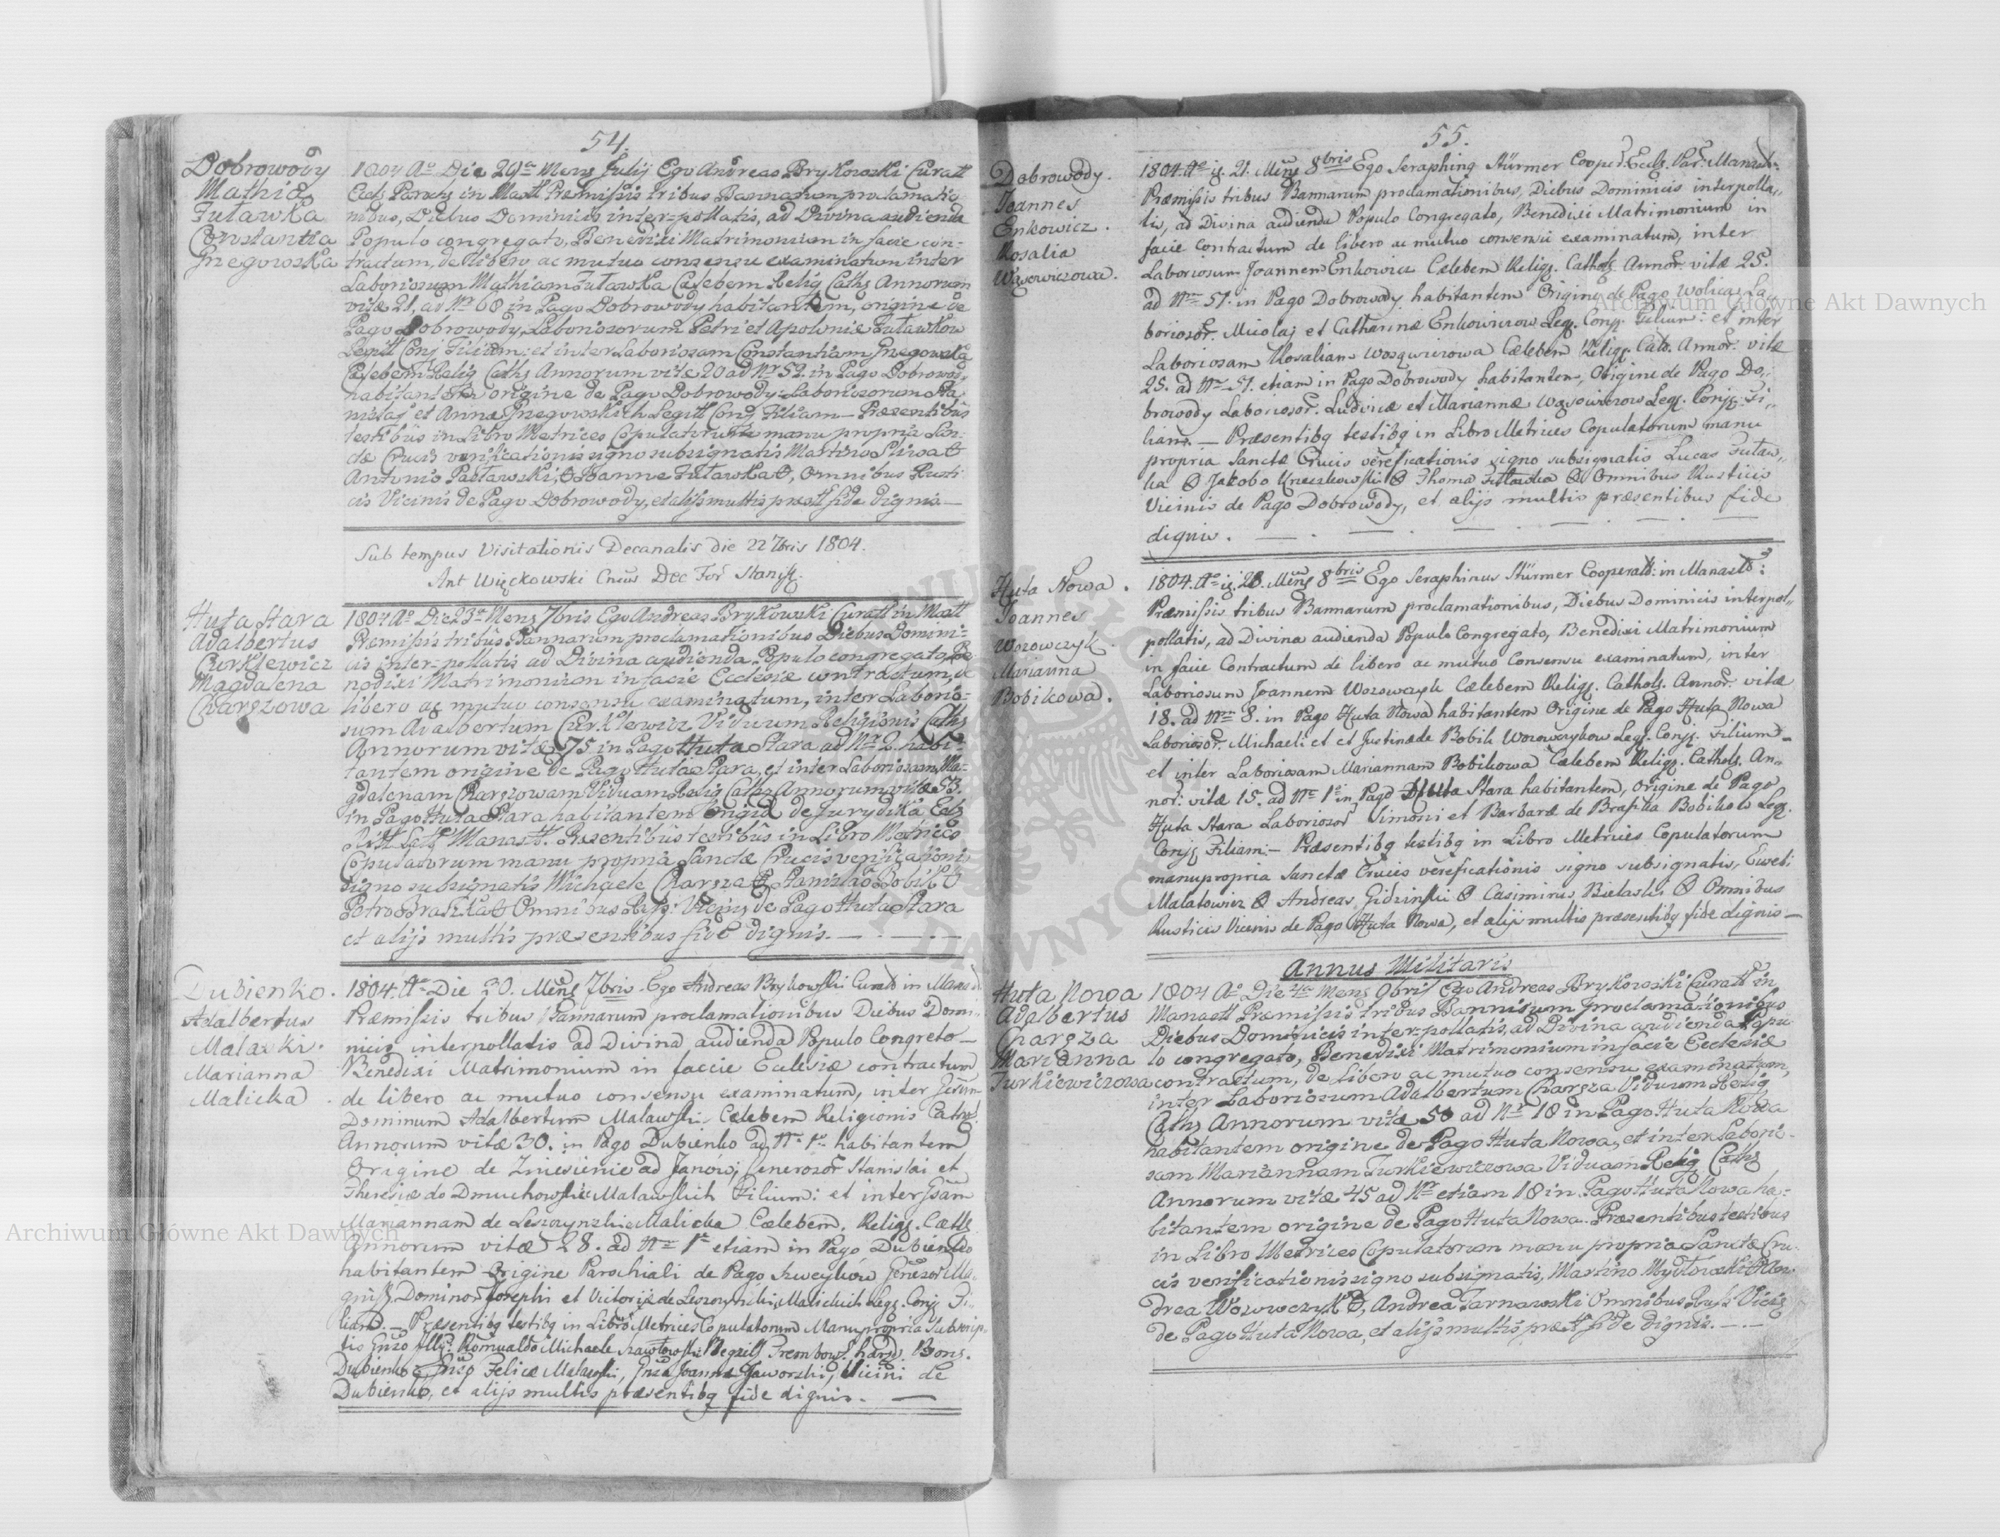 54.
Dobrowody
Mathias
Futawka
Constantia
Gnegowska
1804 Ao Die 29na Mens Julij Ego Andreas Brykowski Curatt
Eccl: Paroch: in Mastt Præmissis tribus Bannarum proclamatio-
nibus, Diebus Dominicis inter-pollatis, ad Divina audienda
Populo congregato, Benedixi Matrimonium in facie con-
tractum, de libero ac mutuo consensu examinatum inter
Laboriosum Mathiam Futawka Cælebem Relig Cath: Annorum
vitæ 21, ad Nr 68 in Pago Dobrowody habitantem, origine de
Pago Dobrowody, Laboriosorum Petri et Apoloniæ Futawkow
Legitt Conj Filium; et inter Laboriosam Constantiam Gnegowska
Cælebem Relig Cath: Annorum vitæ 20 ad Nr 52 in Pago Dobrowody
habitantem origine de Pago Dobrowody Laboriosorum Sta-
nislai et Annæ Gnegowskich Legitt Conj Filiam — Præsentibus
testibus in Libro Metrices Copulatorum manu propria San-
ctæ Crucis verificationis signo subsignatis Martino Sliwa
Antonio Pastawski, Joanne Futawka, Omnibus Rusti-
cis Vicinis de Pago Dobrowody, et alijs multis præstt fide dignis —
Sub tempus Visitationis Decanalis die 22 7bris 1804.
Ant Więckowski Cnus Dec For Stanis:
Huta Stara
Adalbertus
Curklewicz
Magdalena
Charszowa
1804 Ao Die 23a Mens 7bris Ego Andreas Brykowski Curatt in Mastt
Præmissis tribus Bannarum proclamationibus Diebus Domini-
cis inter-pollatis ad Divina audienda Populo congregato, Be-
nedixi Matrimonium in facie Ecclesiæ contractum, de
libero ac mutuo consensu examinatum, inter Laborio-
sum Adalbertum Curklewicz Viduum Religionis Cath:
Annorum vitæ 75 in Pago Huta Stara ad Nr 2 habi-
tantem origine de Pago Huta Stara, et inter Laboriosam Ma-
gdalenam Charszowam Viduam Relig Cath: Annorum vitæ 53.
in Pago Huta Stara habitantem Origine de Jurydika Eccl:
Manastt. Præsentibus testibus in Libro Metrices
Copulatorum manu propria Sanctæ Crucis verificationis
signo subsignatis Michaele Charsza Stanislao Bobik
Petro Brasika Omnibus Rust: Vicinis de Pago Huta Stara
et alijs multis præsentibus fide dignis. — . — . —
Dubienko.
Adalbertus
Malawski.
Marianna
Malicka.
1804. Ao Die 30. Mens 7bris Ego Andreas Brykowski Curatt in Manas
Præmissis tribus Bannarum proclamationibus Diebus Domi-
nicis interpollatis ad Divina audienda Populo Congreto —
Benedixi Matrimonium in faccie Eclesiæ contractum
de libero ac mutuo consensu examinatum, inter
Dominum Adalbertum Malawski Cælebem Religionis Cathol:
Annorum vitæ 30. in Pago Dubienko ad Nr 1. habitantem
Origine de Zniesienie ad Janów, Generosor Stanislai et
Theresiæ de Dmuchowskie Malawskich Filium: et inter
Mariannam de Leszczynskie Malicka Cælebem. Relig: Cath:
Annorum vitæ 28. ad Nr 1 etiam in Pago Dubienko
habitantem Origine Parochiali de Pago Szwejków Generosor
Dominor Josephi et Victoriæ de Leszczynskie Malickich Leg: Conj: Fi-
liam. — Præsentibq testibq in Libro Metrices Copulatorum Manupropria Subscrip-
tis Romualdo Michaele
Dubienko Felice Malawski, Joanne Jaworski, Vicini de
Dubienko, et alijs multis præsentibq fide dignis. —
55.
Dobrowody.
Joannes
Enkowicz.
Rosalia
Wąsowiczowa.
1804. Ao ig. 21. Mens 8bris Ego Seraphinq Stürmer Cooper: Eccle: Par: Manast:
Præmissis tribus Bannarum proclamationibus, Diebus Dominicis interpolla-
tis, ad Divina audienda Populo Congregato, Benedixi Matrimonium in
facie Contractum de libero ac mutuo consensu examinatum, inter
Laboriosum Joannem Enkowicz Cælebem Relig: Cathol: Annor: vitæ 25.
ad Nrm 57. in Pago Dobrowody habitantem Origine de Pago Wolica La-
boriosor: Micolaj et Catharinæ Enkowiczow Leg: Conj: Filium: et inter
Laboriosam Rosaliam Wosąwiczowa Cælebem Relig: Cato. Annor: vitæ
25. ad Nr 51. etiam in Pago Dobrowody habitantem, Origine de Pago Do-
browody Laboriosor: Ludvicæ et Mariannæ Wąsowiczow Leg: Conj: Fi-
liam. — Præsentibq testibq in Libro Metrices Copulatorum manu
propria Sanctæ Crucis verificationis signo subsignatis Lucas Futaw-
ka Jakobo Kruszkowski Thoma Futawka Omnibus Rusticis
Vicinis de Pago Dobrowody, et alijs multis præsentibus fide
dignis. — . — . — . — . —
Huta Nowa.
Joannes
Worowczyk.
Marianna
Bobikowa.
1804. Ao ig. 28. Mens 8bris Ego Seraphinus Stürmer Cooperatt: in Manastt:
Præmissis tribus Bannarum proclamationibus, Diebus Dominicis interpol-
pollatis, ad Divina audienda Populo Congregato, Benedixi Matrimonium
in facie Contractum de libero ac mutuo Consensu examinatum, inter
Laboriosum Joannem Worowczyk Cælebem Relig: Cathol: Annor: vitæ
18. ad Nrm 8. in Pago Huta Nowa habitantem Origine de Pago Huta Nowa
Laboriosor: Michaeli et et Justinæ de Bobik Worowczykow Leg: Conj: Filium —
et inter Laboriosam Mariannam Bobikowa Cælebem Relig: Cathol: An-
nor: vitæ 15. ad Nr 1 in Pago Huta Stara habitantem, Origine de Pago
Huta Stara Laboriosor Simoni et Barbaræ de Brasika Bobikow Leg:
Conj: Filiam. — Præsentibq testibq in Libro Metrices Copulatorum
manupropria Sanctæ Crucis verificationis signo subsignatis,
Malatowicz Andreas Gidzinski Casimirus Bielaski Omnibus
Rusticis Vicinis de Pago Huta Nowa, et alijs multis præsentibq fide dignis —
Annus Militaris
Huta Nowa
Adalbertus
Charsza
Marianna
Turkiewiczowa
1804 Ao Die 4ta Mens 9bris Ego Andreas Brykowski Curatt in
Manastt Præmissis tribus Bannarum proclamationibus
Diebus Dominicis inter-pollatis, ad Divina audienda Popu-
lo congregato, Benedixi Matrimonium in facie Ecclesiæ
contractum, de libero ac mutuo consensu examinatum,
inter Laboriosum Adalbertum Charsza Viduum Relig
Cath: Annorum vitæ 50 ad Nr 18 in Pago Huta Nowa
habitantem origine de Pago Huta Nowa, et inter Laborio-
sam Mariannam Turkiewiczowa Viduam Relig Cath:
Annorum vitæ 45 ad Nr etiam 18 in Pago Huta Nowa ha-
bitantem origine de Pago Huta Nowa. Præsentibus testibus
in Libro Metrices Copulatorum manu propria Sanctæ Cru-
cis verificationis signo subsignatis, Martino An-
drea Worowczyk, Andrea Tarnawski Omnibus Rust: Vicin:
de Pago Huta Nowa, et alijs multis præstt fide dignis. — . —
Archiwum Główne Akt Dawnych
Archiwum Główne Akt Dawnych